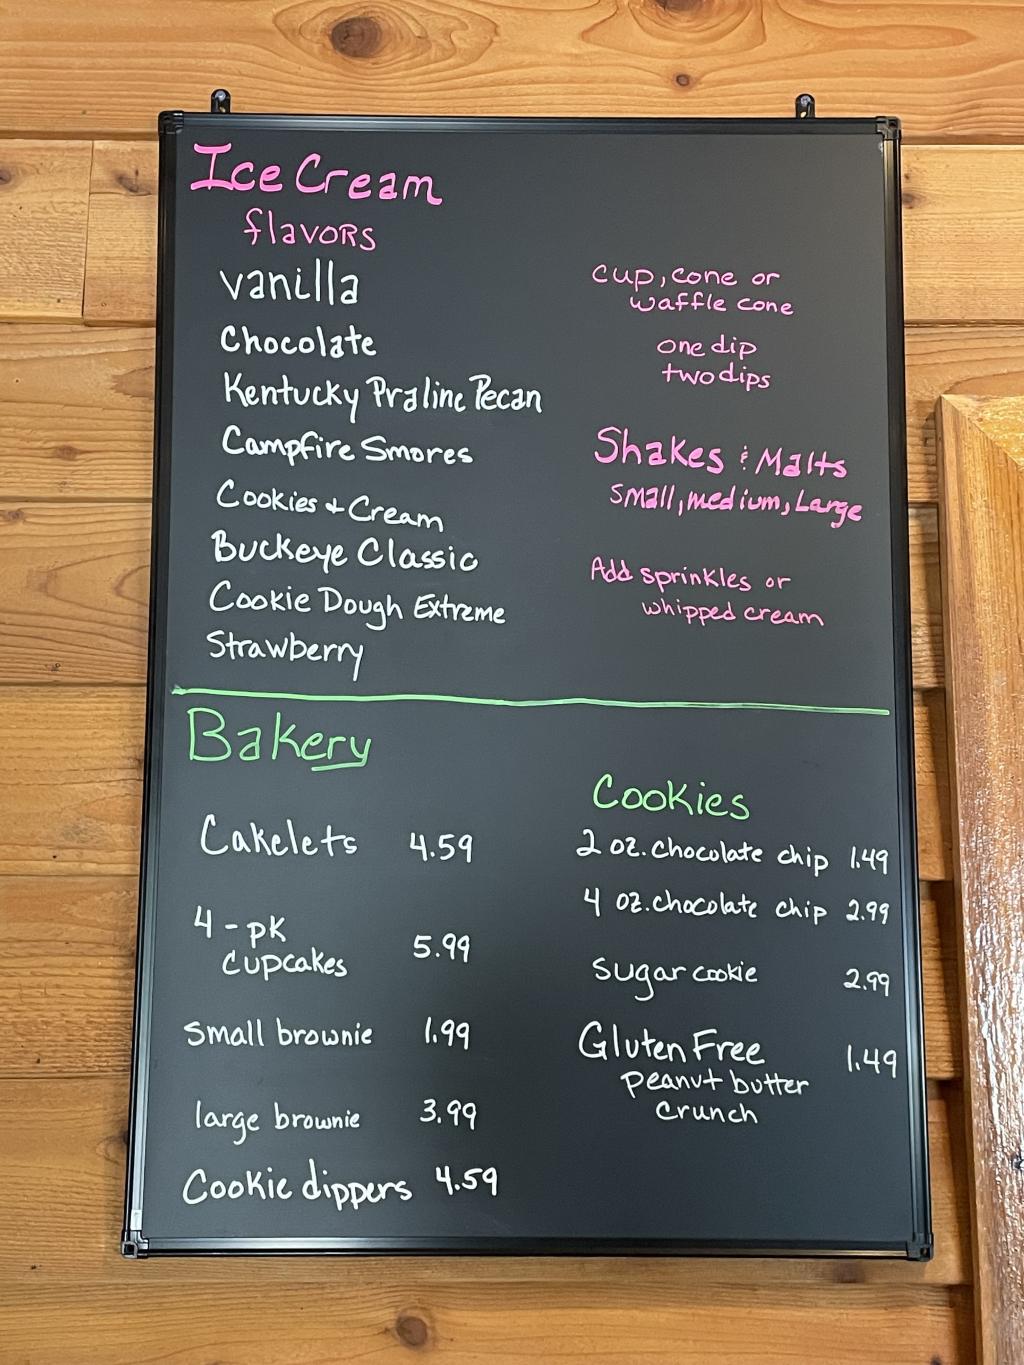 Ice Cream
flavors
vanilla
Chocolate
Kentucky Praline Pecan
Campfire Smores
Cookies + Cream
Buckeye Classic
Cookie Dough Extreme
Strawberry
cup, cone or
waffle cone
one dip
two dips
Shakes & Malts
Small, medium, Large
Add sprinkles or
whipped cream
Bakery
Cakelets 4.59
4-pk
cupcakes 5.99
small brownie 1.99
large brownie 3.99
Cookie dippers 4.59
Cookies
2 oz. chocolate chip 1.49
4 oz. chocolate chip 2.99
sugar cookie 2.99
Gluten Free 1.49
peanut butter
crunch